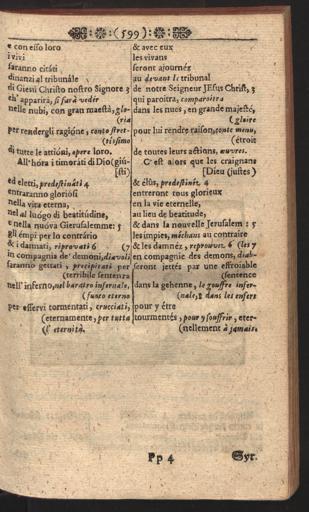 (599)
e con esso loro
i vivi
saranno citáti
dinanzi al tribunále
di Giesù Christo nostro Signore 3
ch' apparirà, si farà vedér
nelle nubi, con gran maestà, glo-
(ria
per rendergli ragióne, conto stret-
(tissimo
di tutte le attióni, opere loro.
All' hóra i timoráti di Dio (giú-
[sti)
ed eletti, predestináti 4
entraranno gloriósi
nella vita eterna,
nel al luógo di beatitúdine,
e nella nuóva Gierusalemme: 5
gli émpi per lo contrário
& i dannati, riprovati 6 (7
in compagnia de' demoni, diavoli
saranno gettati e precipitati per
(terribile sentenza
nell' inferno, nel baratro infernale,
(fuoco eterno
per esservi tormentati, cruciati,
(eternamente, per tutta
(l' eternità.
& avec eux
les vivans
seront ajournéz
au devant le tribunal
de notre Seigneur JEsus Christ, 3
qui paroitra, comparoitra
dans les nues, en grande majesté,
(gloire
pour lui rendre raison, conte menu,
(étroit
de toutes leurs actions, œuvres.
C'est alors que les craignans
[Dieu (justes)
& élûs, predestinéz 4
entreront tous glorieux
en la vie eternelle,
au lieu de beatitude,
& dans la nouvelle Jerusalem: 5
les impies, méchans au contraire
& les damnéz, reprouvez 6 (les 7
en compagnie des demons, diab-
seront jettés par une effroiable
(sentence
dans la gehenne, le gouffre infer-
(nale, & dans les enfers
pour y étre
tourmentés, pour y souffrir, eter-
(nellement à jamais.
Pp 4
Syr.